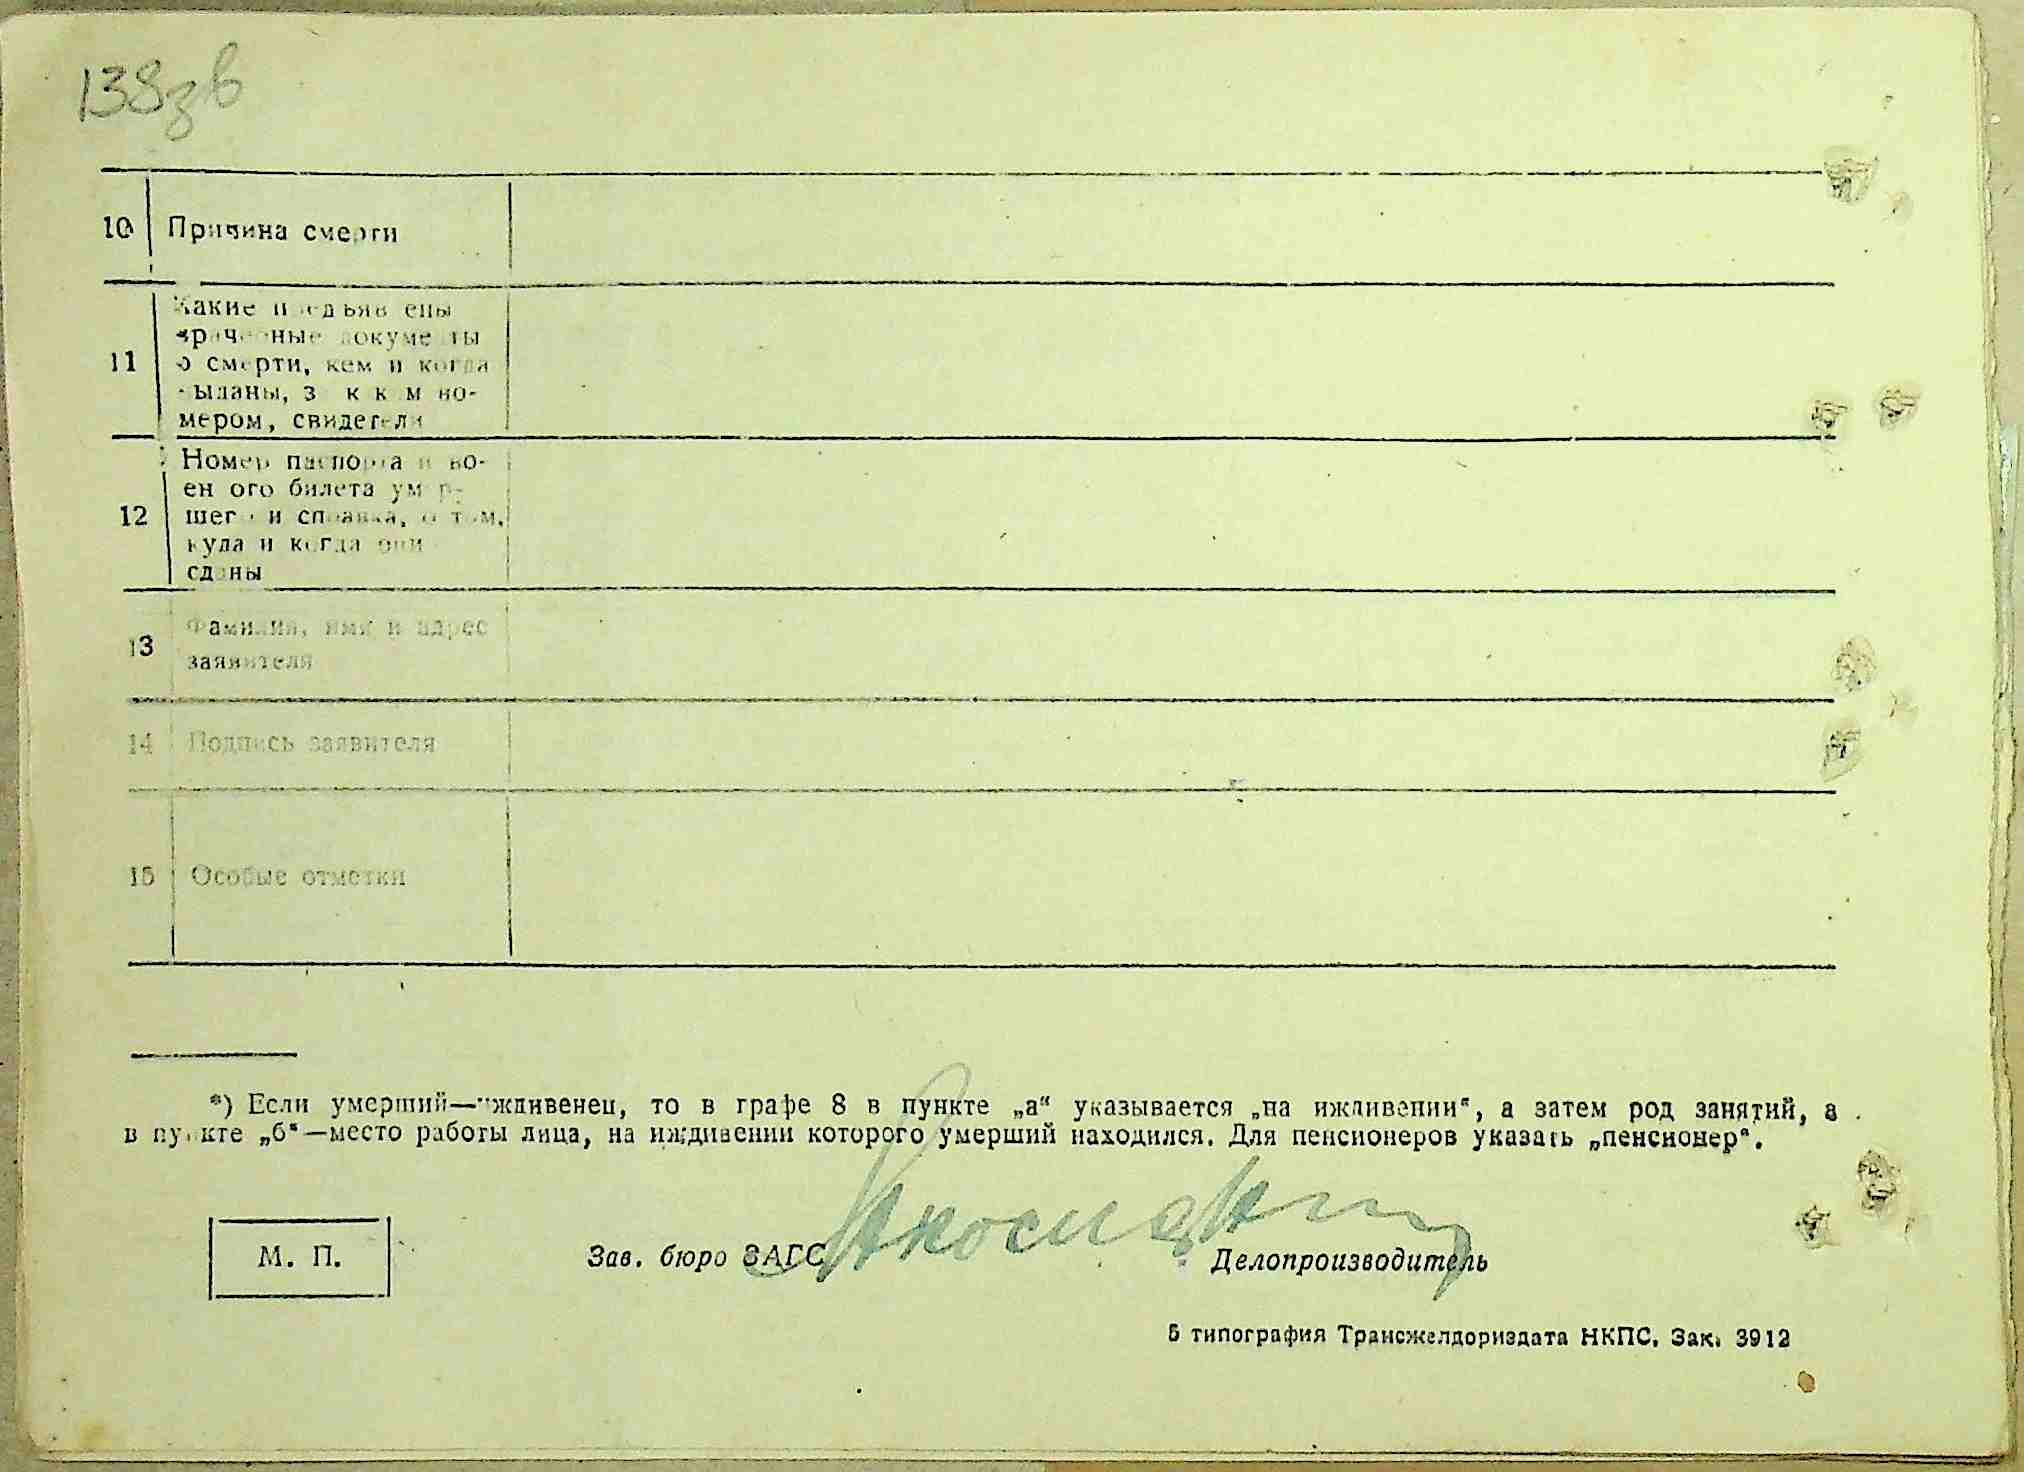 138
10 Причина смерти
Какие предъявлены
врачебные документы
11 о смерти, кем и когда
выданы, за к к м но-
мером, свидетели
Номер паспорта и во-
ен ого билета умер-
12 шего и справка, о том,
куда и когда они
сданы
Фамилия, имя и адрес
13 заявителя
14 Подпись заявителя
15 Особые отметки
*) Если умерший—иждивенец, то в графе 8 в пункте „а“ указывается „на иждивении“, а затем род занятий, а
в пункте „б“—место работы лица, на иждивении которого умерший находился. Для пенсионеров указать „пенсионер“.
М. П. Зав. бюро ЗАГС Делопроизводитель
5 типография Трансжелдориздата НКПС. Зак. 3912